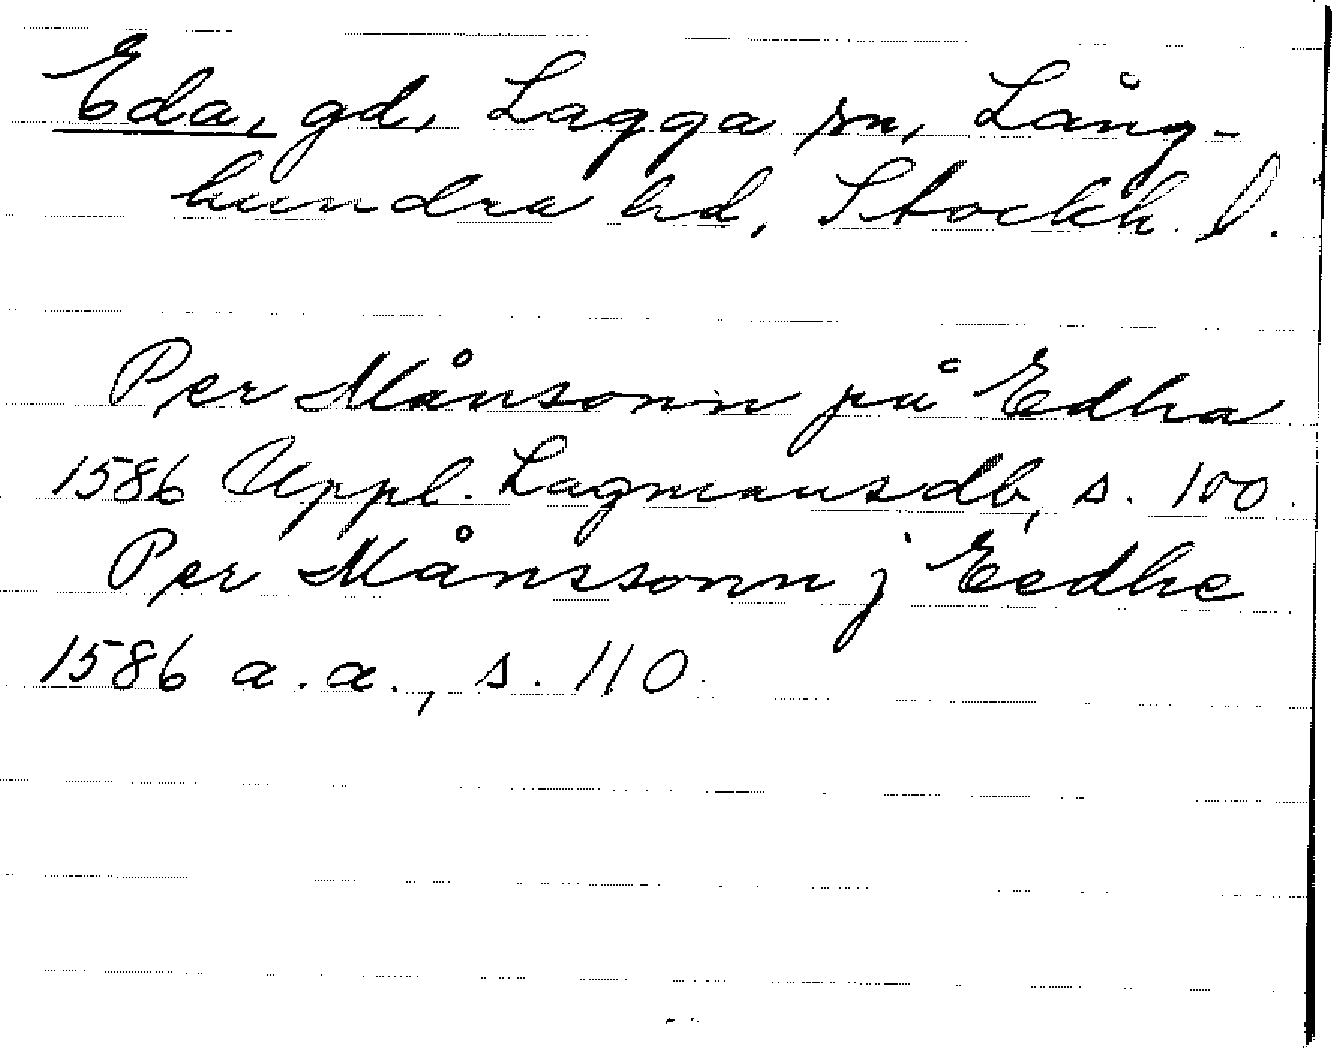 Eda, gd, Lagga sn, Lång-
hundra hd, Stockh. l.
Per Månsonn på Edha
1586 Uppl. Lagmansdb, s. 100.
Per Månssonn j Eedhe
1586 a.a., s. 110.